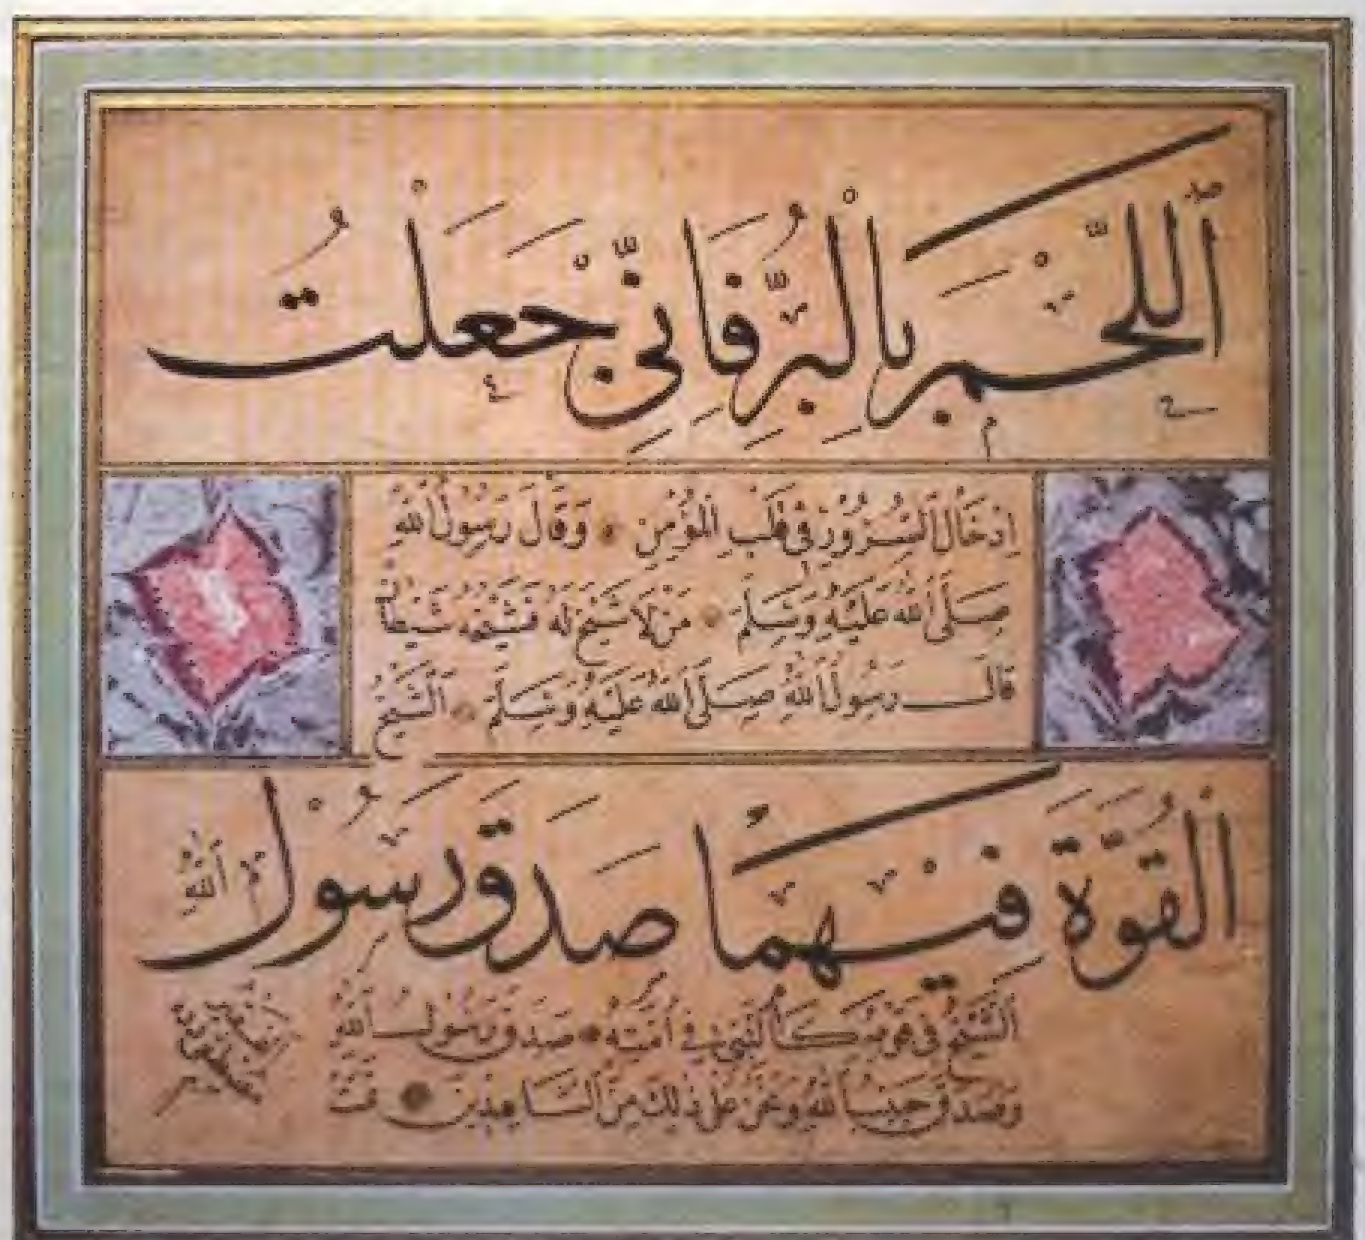 اَللَّحْمَ بِالْبُرِّ فَاِنِّي جَعَلْتُ
اِدْخَالُ السُّرُورِ فِي قَلْبِ الْمُؤْمِنِ وَقَالَ رَسُولُ اللهِ
صَلَّى اللهُ عَلَيْهِ وَسَلَّمَ مَنْ لَا شَيْخَ لَهُ فَشَيْخُهُ شَيْطَانٌ
قَالَ رَسُولُ اللهِ صَلَّى اللهُ عَلَيْهِ وَسَلَّمَ اَلشَّيْخُ
اَلْقُوَّةَ فِيْهِمَا صَدَقَ رَسُوْلُ اللهِ
اَلشَّيْخُ فِي قَوْمِهِ كَالنَّبِيِّ فِي اُمَّتِهِ صَدَقَ رَسُولُ اللهِ
وَصَدَقَ حَبِيبُ اللهِ وَنَحْنُ عَلَى ذٰلِكَ مِنَ الشَّاهِدِينَ تَمَّتْ